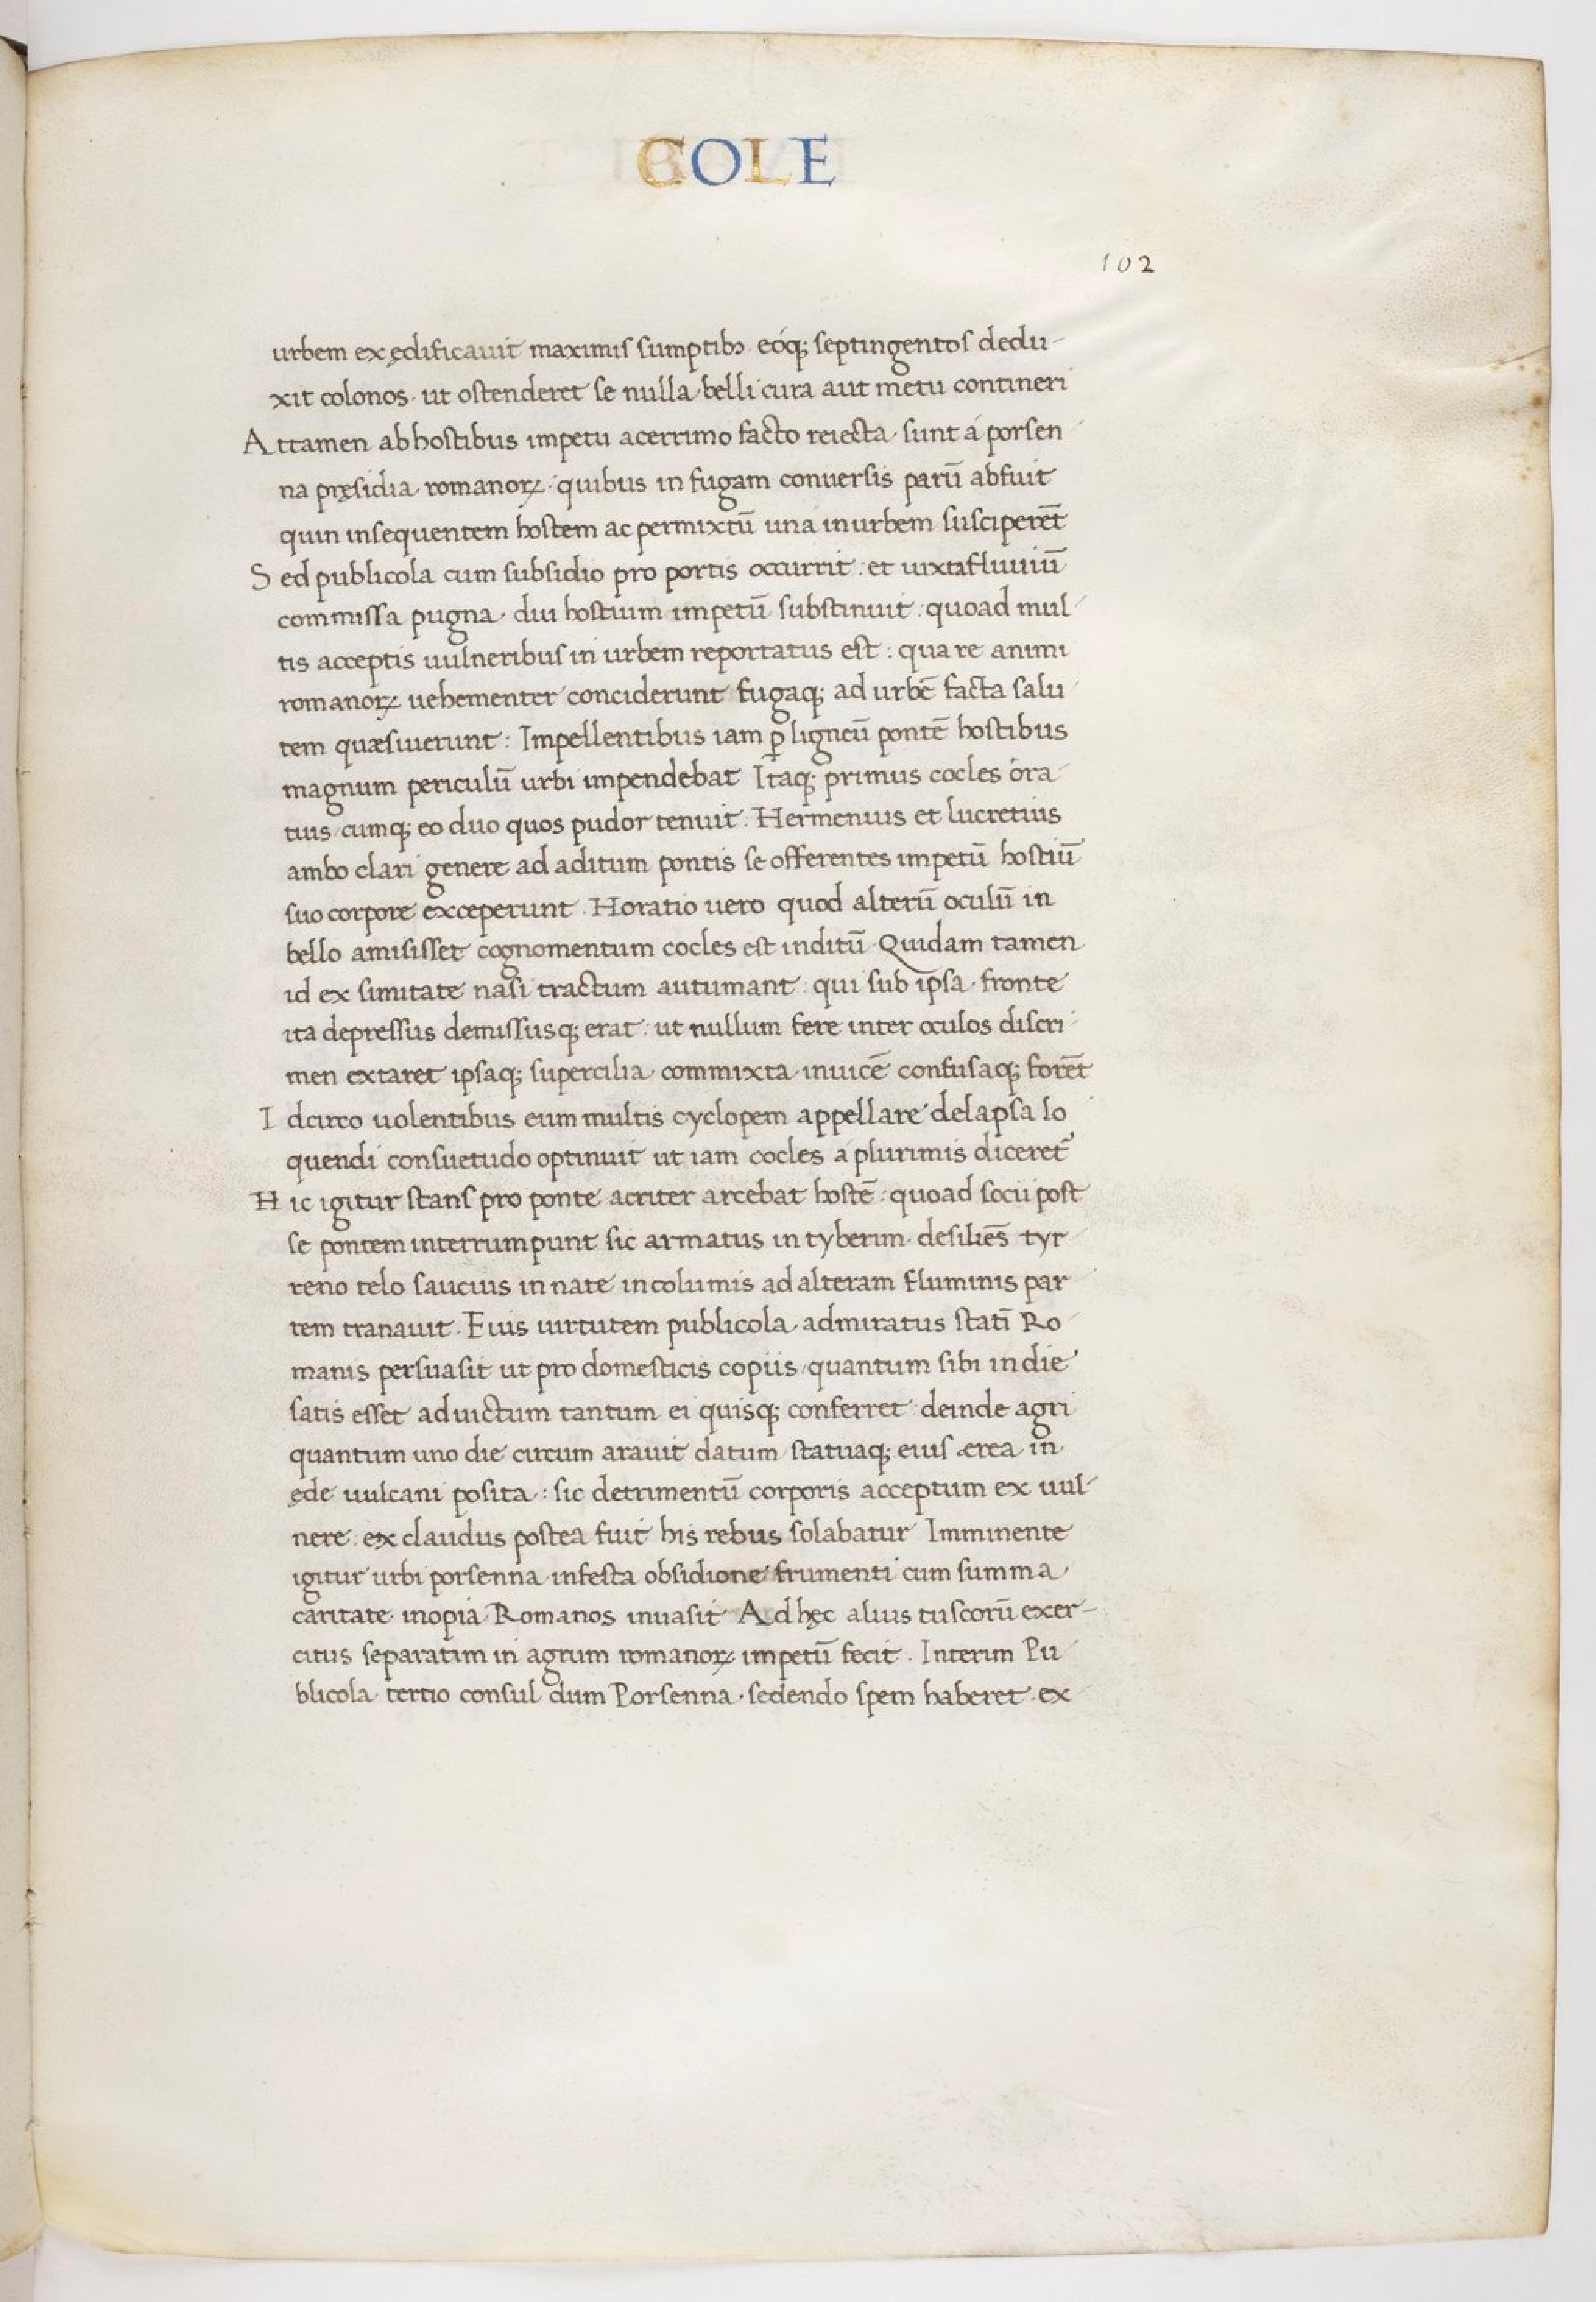 COLE
102
urbem exędificauit maximis sumptibꝫ eóqꝫ septingentos dedu-
xit colonos· ut ostenderet se nulla belli cura aut metu contineri
Attamen ab hostibus impetu acerrimo facto reiecta· sunt á porsen
na pręsidia romanoꝝ· quibus in fugam conuersis parū abfuit
quin insequentem hostem ac permixtū una in urbem susciperēt
Sed publicola cum subsidio pro portis occurrit: et iuxta fluuiū
commissa pugna· diu hostium impetū substinuit: quoad mul-
tis acceptis uulneribus in urbem reportatus est: quare animi
romanoꝝ uehementer conciderunt fugaqꝫ ad urbē facta salu-
tem quæsiuerunt: Impellentibus iam ꝑ ligneū pontē hostibus
magnum periculū urbi impendebat Itaqꝫ primus cocles ora-
tius cumqꝫ eo duo quos pudor tenuit. Hermenius et lucretius
ambo clari genere ad aditum pontis se offerentes impetū hostiū
suo corpore exceperunt. Horatio uero quod alterū oculū in
bello amisisset cognomentum cocles est inditū· Quidam tamen
id ex simitate nasi tractum autumant: qui sub ipsa· fronte
ita depressus demissusqꝫ erat: ut nullum fere inter oculos discri-
men extaret ipsaqꝫ supercilia commixta inuicē confusaqꝫ forēt
Idcirco uolentibus eum multis cyclopem appellare delapsa lo
quendi consuetudo optinuit ut iam cocles a plurimis diceret᷑
Hic igitur stans pro ponte acriter arcebat hostē: quoad socii post
se pontem interrumpunt sic armatus in tyberim· desiliēs tyr-
reno telo saucius in nate incolumis ad alteram fluminis par-
tem tranauit. Eius uirtutem publicola admiratus statī Ro-
manis persuasit ut pro domesticis copiis quantum sibi in die
satis esset ad uictum tantum ei quisqꝫ conferret deinde agri
quantum uno die circum arauit datum statuaqꝫ eius ærea in
ęde uulcani posita: sic detrimentū corporis acceptum ex uul-
nere· ex claudus postea fuit his rebus solabatur Imminente
igitur urbi porsenna infesta obsidione frumenti cum summa
caritate inopia Romanos inuasit Ad hęc alius tuscorū exer-
citus separatim in agrum romanoꝝ impetū fecit. Interim Pu-
blicola tertio consul dum Porsenna· sedendo spem haberet ex